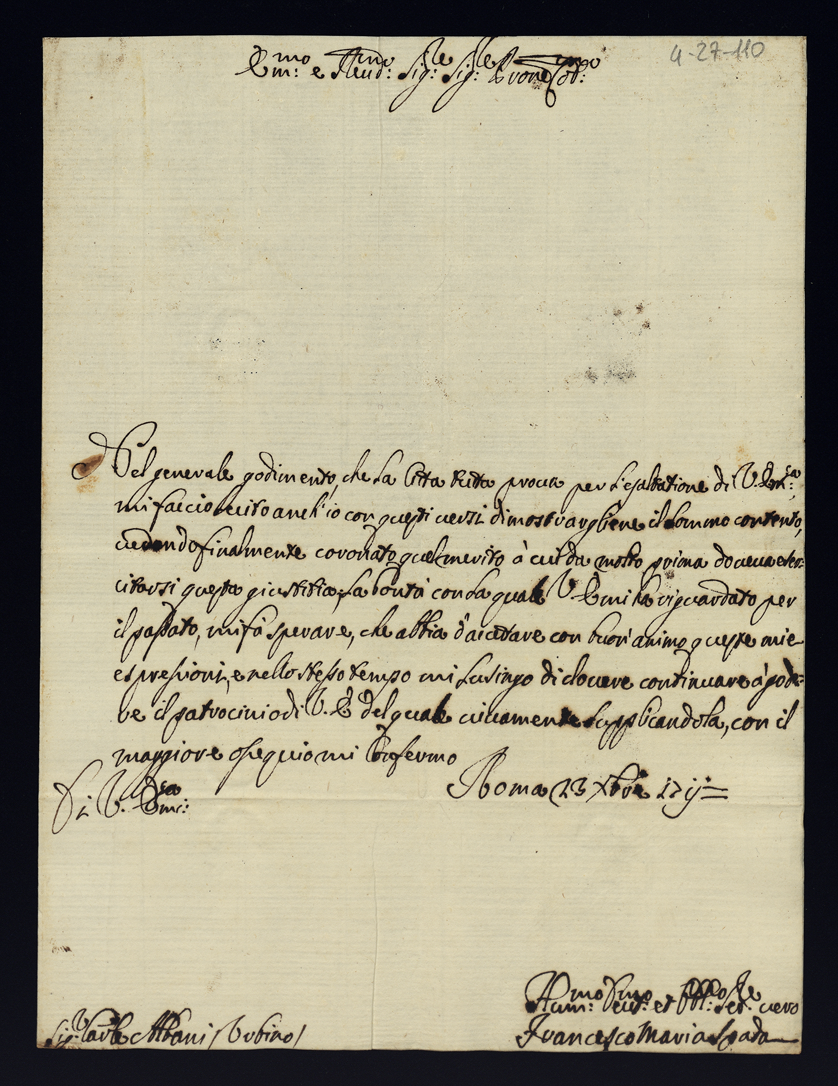 4-27-110
Em:mo e Reud:mo Sig:re Sig:re Prone Col:mo
Nel generale godimento, che la Città tutta proua per l'esaltatione di V. Em:za,
mi faccio lecito anch'io con questi uersi dimostrargliene il sommo contento,
uedendo finalmente coronato quel merito à cui da molto prima doueua eser-
citarsi questa giustitia; La bontà con la quale V. Em: ha riguardato per
il passato, mi fà sperare, che abbia d'accettare con buon animo queste mie
espressioni, e nello stesso tempo mi lusingo di douere continuare à gode-
re il patrocinio di V. E. del quale uiuamente supplicandola, con il
maggiore ossequio mi confermo
Di V. Em:za
Roma 23 Xbre 1711
Hum:mo Deu:mo et Obl:mo Ser:re uero
Francesco Maria Spada
Sig: Card:le Albani / Urbino /